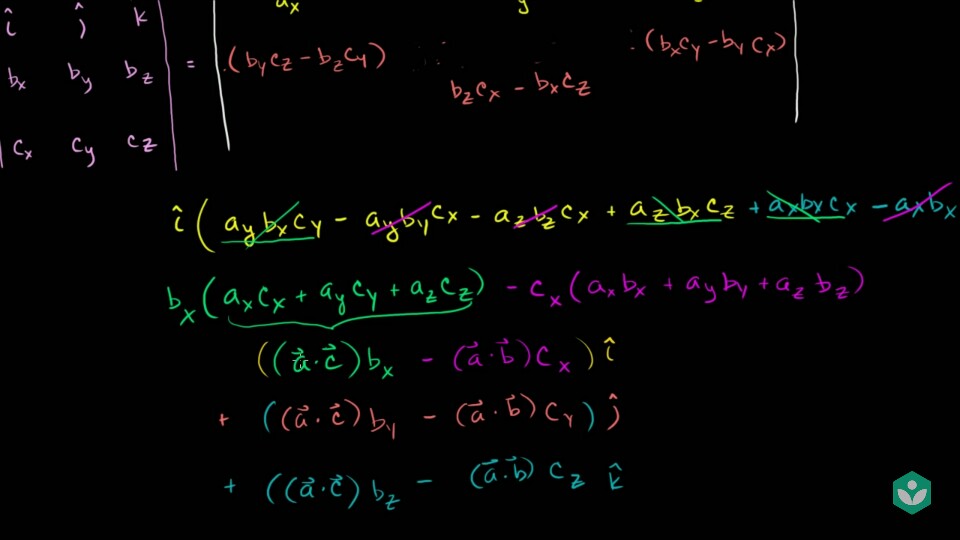 a_x y
î ĵ k
b_x b_y b_z = (b_y c_z − b_z c_y) (b_x c_y − b_y c_x)
b_z c_x − b_x c_z
c_x c_y c_z
î ( a_y b_x c_y − a_y b_y c_x − a_z b_z c_x + a_z b_x c_z + a_x b_x c_x − a_x b_x
b_x ( a_x c_x + a_y c_y + a_z c_z ) − c_x ( a_x b_x + a_y b_y + a_z b_z )
((a⃗ · c⃗) b_x − (a⃗ · b⃗) c_x) î
+ ((a⃗ · c⃗) b_y − (a⃗ · b⃗) c_y) ĵ
+ ((a⃗ · c⃗) b_z − (a⃗ · b⃗) c_z k̂